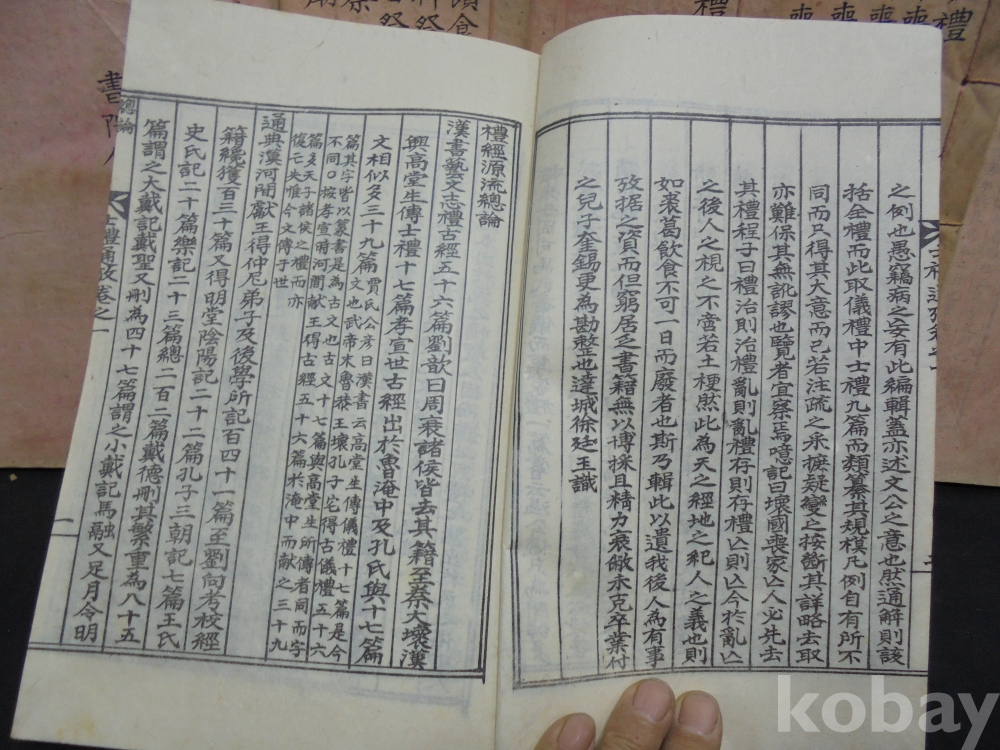 之例也愚竊病之妄有此編輯蓋亦述文公之意也然通解則該
括全禮而此取儀禮中士禮九篇而類纂其規模凡例自有所不
同而只得其大意而已若注疏之承摭疑變之按斷其詳略去取
亦難保其無訛謬也覽者宜察焉噫記曰壞國喪家亾人必先去
其禮程子曰禮治則治禮亂則亂禮存則存禮亾則亾今於亂亾
之後人之視之不啻若土梗然此為天之經地之紀人之義也則
如裘葛飲食不可一日而廢者也斯乃輯此以遺我後人為有事
攷据之資而但窮居之書籍無以博採且精力衰敝未克卒業付
之兒子奎錫更為勘整也達城徐廷玉識
禮經源流總論
漢書藝文志禮古經五十六篇劉歆曰周衰諸侯皆去其籍至秦大壞漢
興高堂生傳士禮十七篇孝宣世古經出於魯淹中及孔氏與十七篇
文相似多三十九篇賈氏公彦曰漢書云高堂生傳儀禮十七篇是今
篇其字皆以篆書是為古文也古文十七篇與高堂生所傳者同而字
不同○按孝宣時河閒献王得古經五十六篇於淹中而献之三十九
篇多天子諸侯之禮而亦
復亡失惟今文傳于世
通典漢河閒獻王得仲尼弟子及後學所記百四十一篇至劉向考校經
籍纔獲百三十篇又得明堂陰陽記二十二篇孔子三朝記七篇王氏
史氏記二十篇樂記二十三篇總二百二篇戴德刪其繁重為八十五
篇謂之大戴記戴聖又刪為四十七篇謂之小戴記馬融又足月令明
總論
士禮通攷卷之一
一
kobay